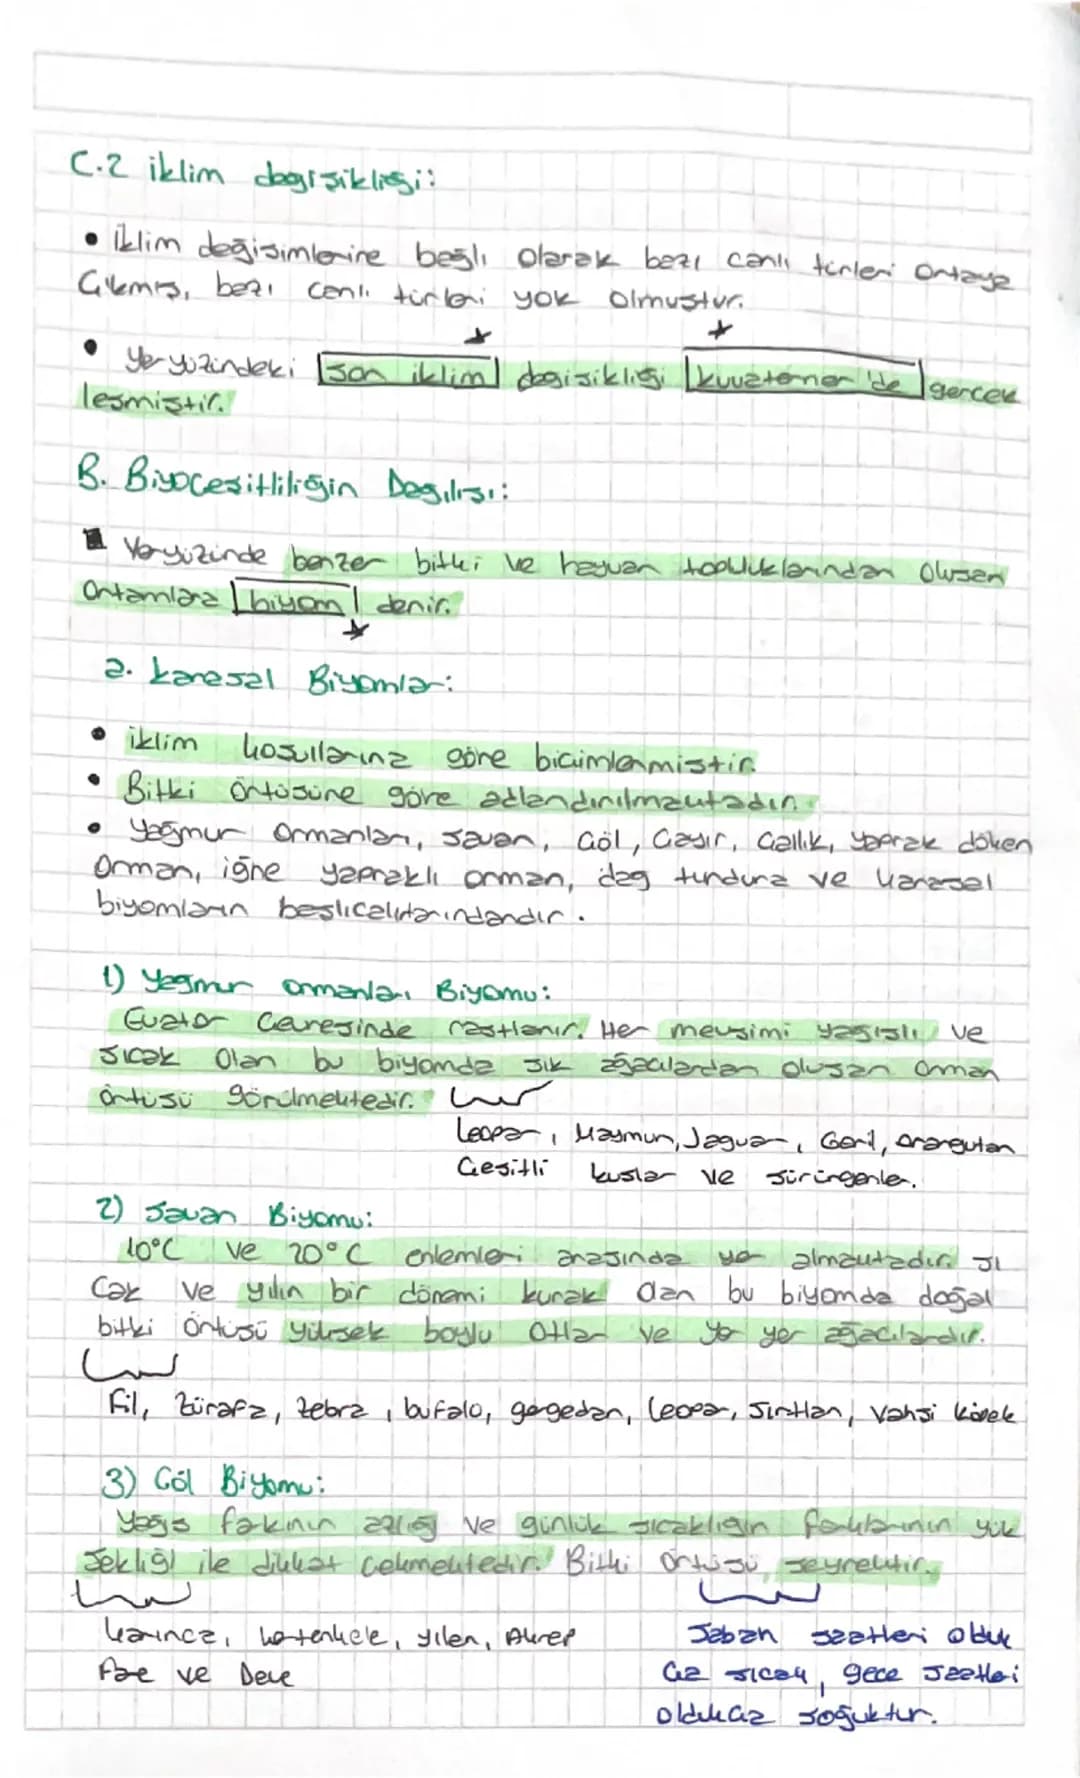 C.2 iklim değişikliği:
• İklim değişimlerine bağlı olarak bazı canlı türleri ortaya
Çıkmış, bazı canlı türleri yok olmuştur.
• yer yüzündeki son iklim değişikliği kuvaterner'de gerçek
leşmiştir.
B. Biyoçeşitliliğin Dağılışı:
Yeryüzünde benzer bitki ve hayvan topluluklarından oluşan
Ortamlara biyom denir.
a. karasal Biyomlar:
• iklim koşullarına göre biçimlenmiştir.
• Bitki örtüsüne göre adlandırılmaktadır.
• Yağmur Ormanları, savan, Çöl, Çayır, Çallık, yaprak döken
Orman, iğne yapraklı orman, dağ tundura ve karasal
biyomların başlıcalarındandır.
1) Yağmur ormanları Biyomu:
Ekvator Çevresinde rastlanır. Her mevsimi yağışlı ve
sıcak Olan bu biyomda sık ağaçlardan oluşan orman
örtüsü görülmektedir.
Leopar, Maymun, Jaguar, Goril, orangutan
Çeşitli kuşlar ve sürüngenler.
2) Savan Biyomu:
10°C ve 20°C enlemleri arasında yer almaktadır. sı
cak ve yılın bir dönemi kurak olan bu biyomda doğal
bitki örtüsü yüksek boylu otlar ve yer yer ağaçlardır.
Fil, Zürafa, zebra, bufalo, gergedan, leopar, sırtlan, vahşi köpek
3) Çöl Biyomu:
Yağış farkının azlığı ve günlük sıcaklığın farklarının yük
sekliği ile dikkat çekmektedir. Bitki örtüsü, seyrektir.
karınca, kertenkele, yılan, Akrep
Fare ve Deve
Sabah saatleri olduk
ça sıcak, gece saatleri
oldukça soğuktur.